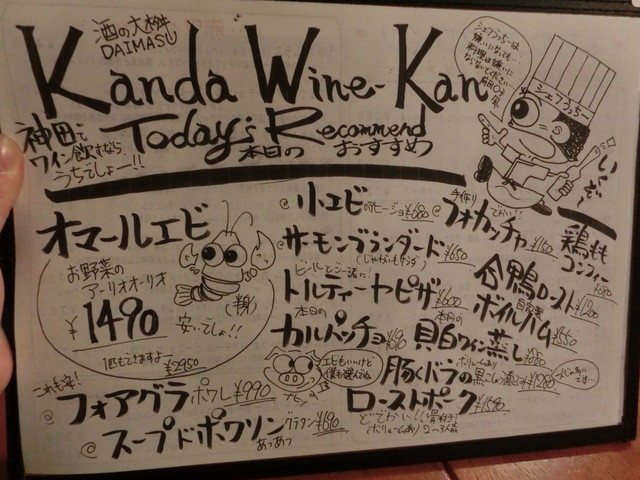 酒の大桝
DAIMASU
Kanda Wine-Kan
Today's Recommend
本日の おすすめ
神田で
ワイン飲むなら
うちでしょー!!
シェフコッちー
いくぞー
オマールエビ
お野菜の
アーリオオーリオ
(半身)
¥1490
安いでしょ!!
1匹もできますよー
¥2950
小エビのアヒージョ ¥680
サーモンブランダード ¥650
ビールと一緒に!
トルティーヤピザ ¥600
本日の
カルパッチョ
手作り
フォカッチャ ¥160
鶏もも
コンフィー
¥980
合鴨ロースト ¥1200
自家製
ボイルハム ¥550
本日の
貝白ワイン蒸し ¥680
エビもいいけど
僕も選んでね
豚くドラの
ボリュームあり
ローストポーク ¥1590
どでかい!! 骨付き!
(ボリュームあり) 2~3人前
これも楽!
フォアグラ ポワレ ¥990
スープドポワソン グラタン ¥690
あつあつ